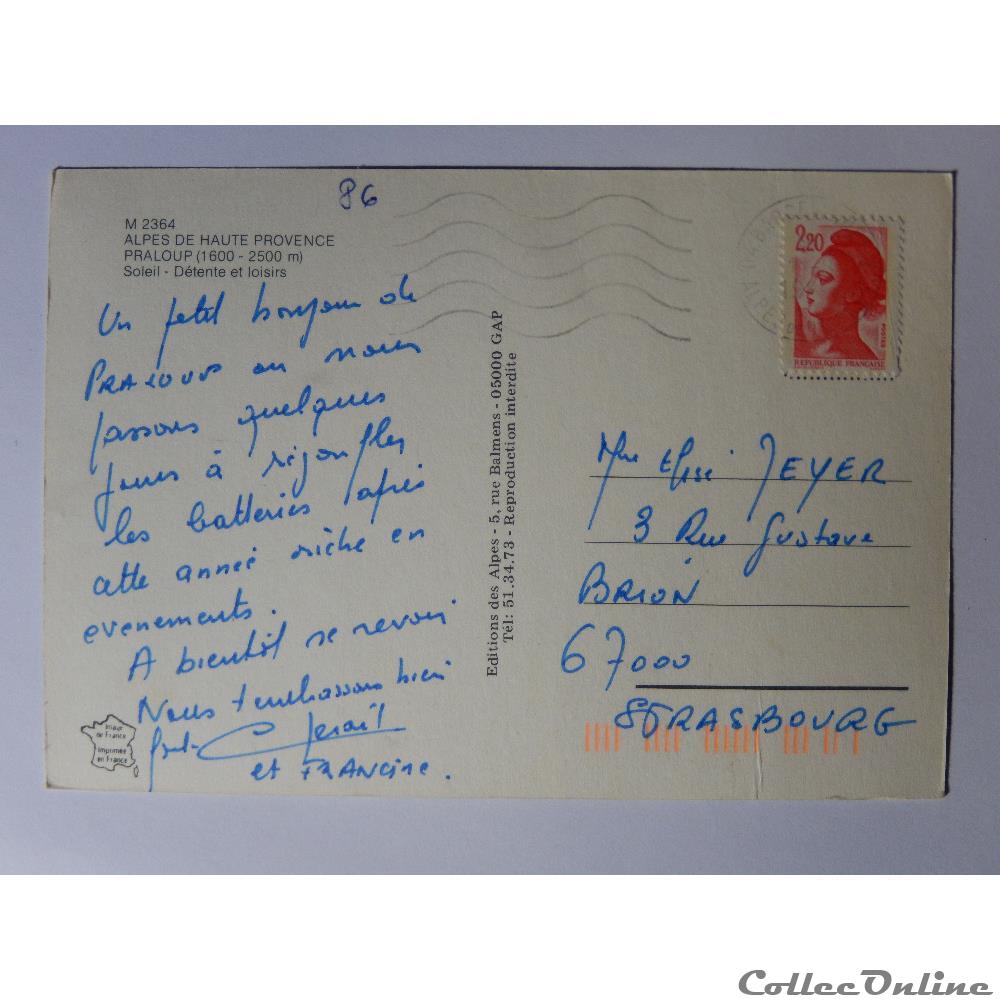 86
M 2364
ALPES DE HAUTE PROVENCE
PRALOUP (1600 - 2500 m)
Soleil - Détente et loisirs
Un petit bonjour de
PRALOUP ou nous
passons quelques
jours à regonfler
les batteries après
cette année riche en
evenements.
A bientôt se revoir
Nous t'embrassons bien
fort
et FRANCINE.
Imour de France
Imprimée en France
Editions des Alpes - 5, rue Balmens - 05000 GAP
Tél: 51.34.73 - Reproduction interdite
2,20
POSTES
REPUBLIQUE FRANÇAISE
Mme Elise MEYER
3 Rue Gustave
BRION
67000
STRASBOURG
CollecOnline